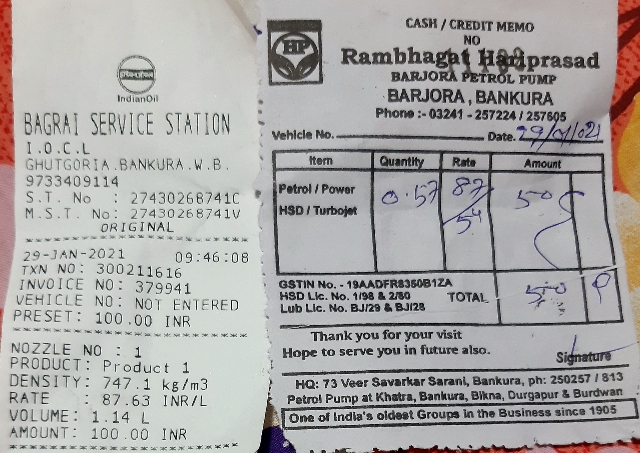 IndianOil
BAGRAI SERVICE STATION
I.O.C.L
GHUTGORIA.BANKURA.W.B.
9733409114
S.T. No : 27430268741C
M.S.T. No: 27430268741V
ORIGINAL
29-JAN-2021 09:46:08
TXN NO: 300211616
INVOICE NO: 379941
VEHICLE NO: NOT ENTERED
PRESET: 100.00 INR
NOZZLE NO : 1
PRODUCT: Product 1
DENSITY: 747.1 kg/m3
RATE : 87.63 INR/L
VOLUME: 1.14 L
AMOUNT: 100.00 INR
HP
CASH / CREDIT MEMO
NO
Rambhagat Hariprasad
BARJORA PETROL PUMP
BARJORA, BANKURA
Phone :- 03241 - 257224 / 257605
Vehicle No. Date. 29/01/021
Item Quantity Rate Amount
Petrol / Power 0.57 87 50
HSD / Turbojet 54
GSTIN No. - 19AADFR8350B1ZA
HSD Lic. No. 1/98 & 2/80 TOTAL 50
Lub Lic. No. BJ/29 & BJ/28
Thank you for your visit
Hope to serve you in future also.
Signature
HQ: 73 Veer Savarkar Sarani, Bankura, ph: 250257 / 813
Petrol Pump at Khatra, Bankura, Bikna, Durgapur & Burdwan
One of India's oldest Groups in the Business since 1905